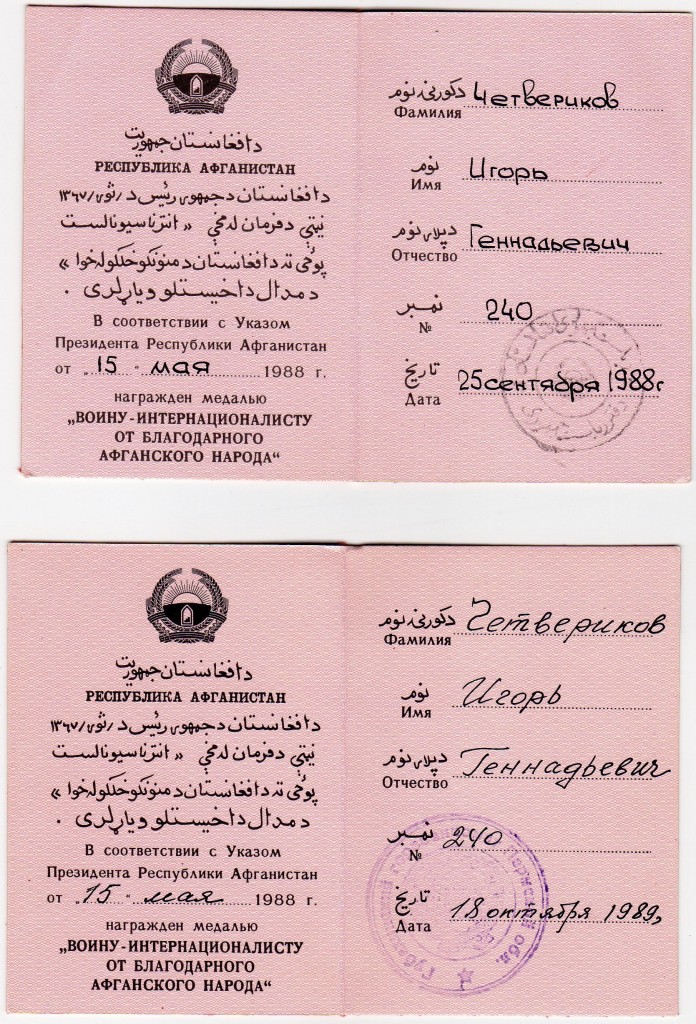 د افغانستان جمهوریت
РЕСПУБЛИКА АФГАНИСТАН
د افغانستان د جمهوری رئیس د / ثور / ۱۳۶۷
نیټې د فرمان له مخې « انترناسیونالست
پوځی ته د افغانستان د منونکو خلکو له خوا »
د مدال د اخیستلو ویاړ لری .
В соответствии с Указом
Президента Республики Афганистан
от „15“ мая 1988 г.
награжден медалью
„ВОИНУ-ИНТЕРНАЦИОНАЛИСТУ
ОТ БЛАГОДАРНОГО
АФГАНСКОГО НАРОДА“
د کورنی نوم Четвериков
Фамилия
نوم Игорь
Имя
د پلار نوم Геннадьевич
Отчество
نمبر 240
№
تاریخ 25 сентября 1988г
Дата
د افغانستان جمهوریت
РЕСПУБЛИКА АФГАНИСТАН
د افغانستان د جمهوری رئیس د / ثور / ۱۳۶۷
نیټې د فرمان له مخې « انترناسیونالست
پوځی ته د افغانستان د منونکو خلکو له خوا »
د مدال د اخیستلو ویاړ لری .
В соответствии с Указом
Президента Республики Афганистан
от „15“ мая 1988 г.
награжден медалью
„ВОИНУ-ИНТЕРНАЦИОНАЛИСТУ
ОТ БЛАГОДАРНОГО
АФГАНСКОГО НАРОДА“
د کورنی نوم Четвериков
Фамилия
نوم Игорь
Имя
د پلار نوم Геннадьевич
Отчество
نمبر 240
№
تاریخ 18 октября 1989г
Дата